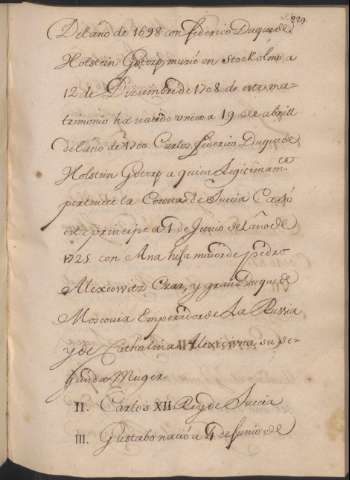 229.
Del año de 1698 con federico Duque de
Holstein Gotorp, murio en Stockolmo a
12 de Diciembre de 1708 de este ma-
trimonio ha nacido unico a 19 de abrill
del año de 1700. Carlos federico Duque de
Holstein Gotorp a quien legitimam.te
perteneze la Corona de Suecia Caso
este principe a 1 de Junio del año de
1725 con Ana hija maior de pedro
Alexowitz Czar, y gran Duque de
Moscovia Emperador de La Russia
y de Cathalina Alexievna, su se-
gunda Muger
II. Carlos XII Rey de Suecia
III. Gustabo nació a 4 de Junio de